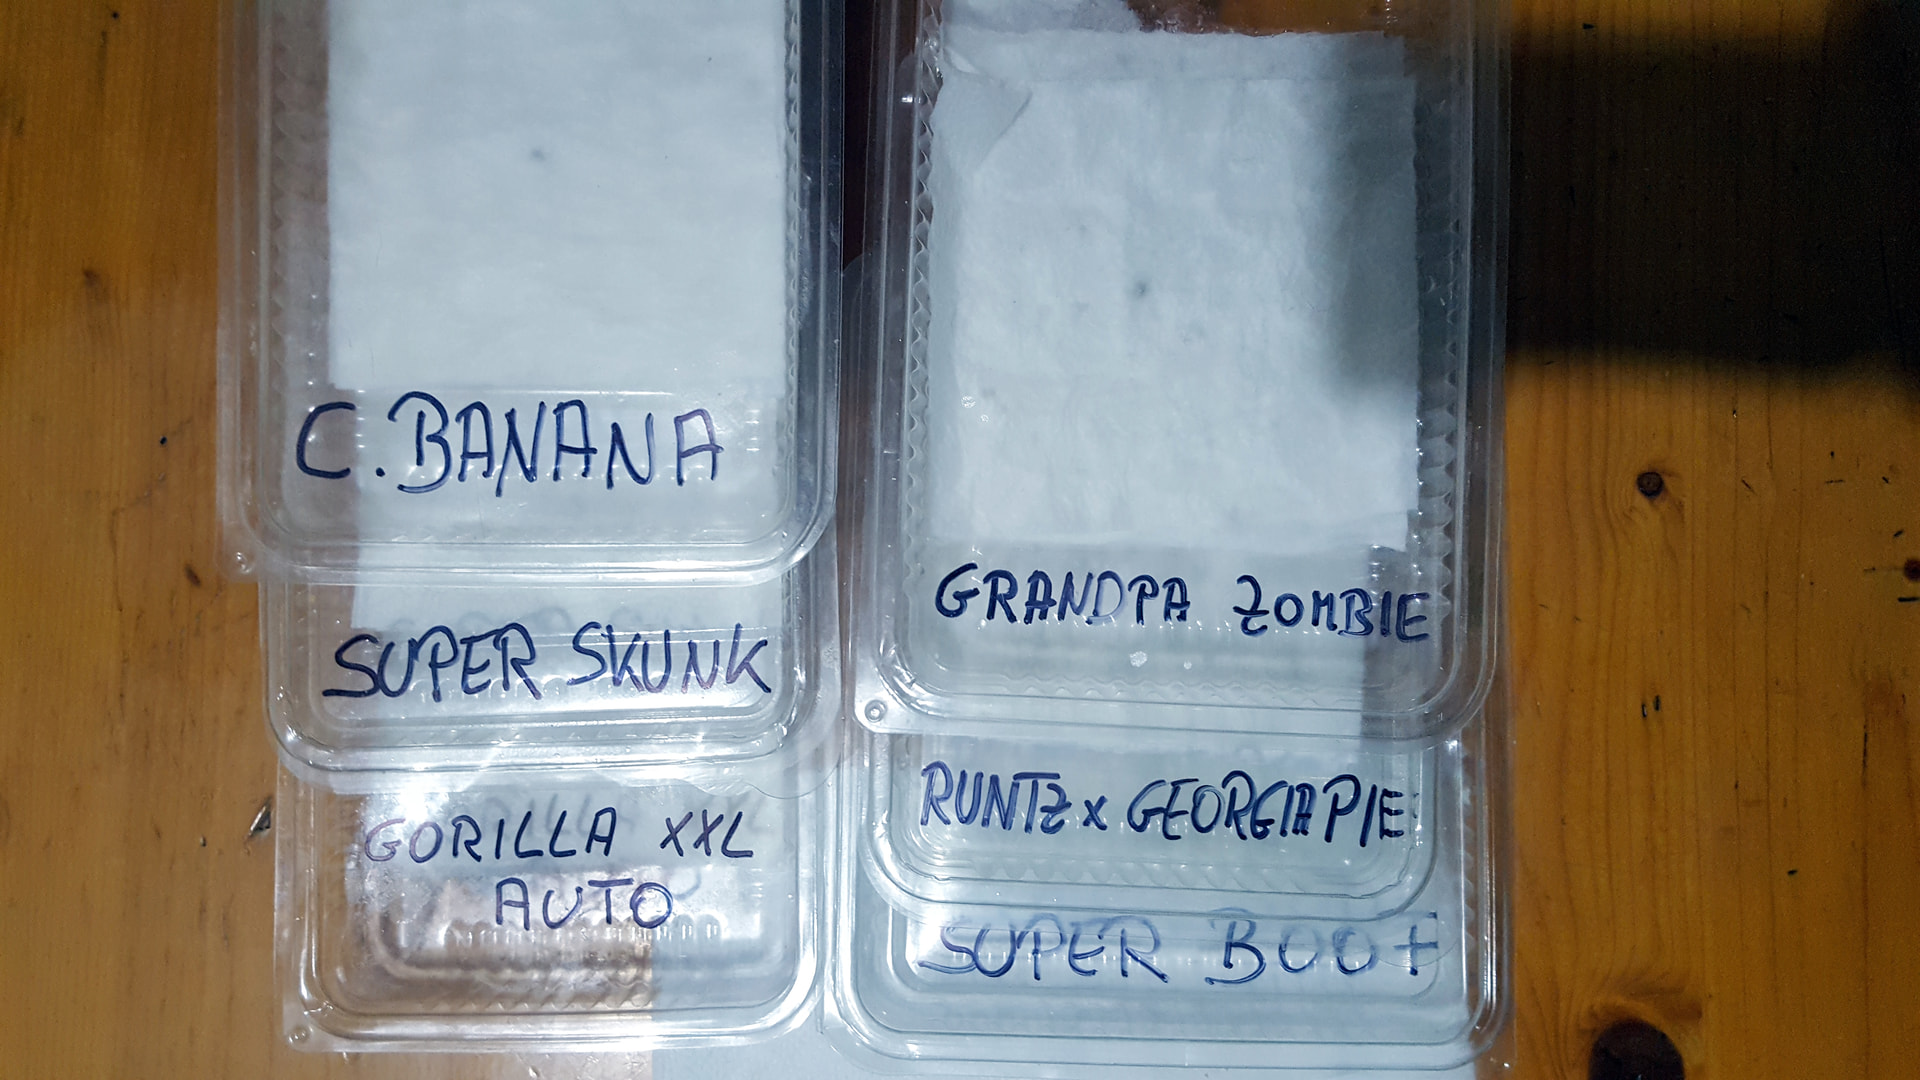 C. BANANA
SUPER SKUNK
GORILLA XXL
AUTO
GRANDPA ZOMBIE
RUNTZ x GEORGIA PIE
SUPER BOOT